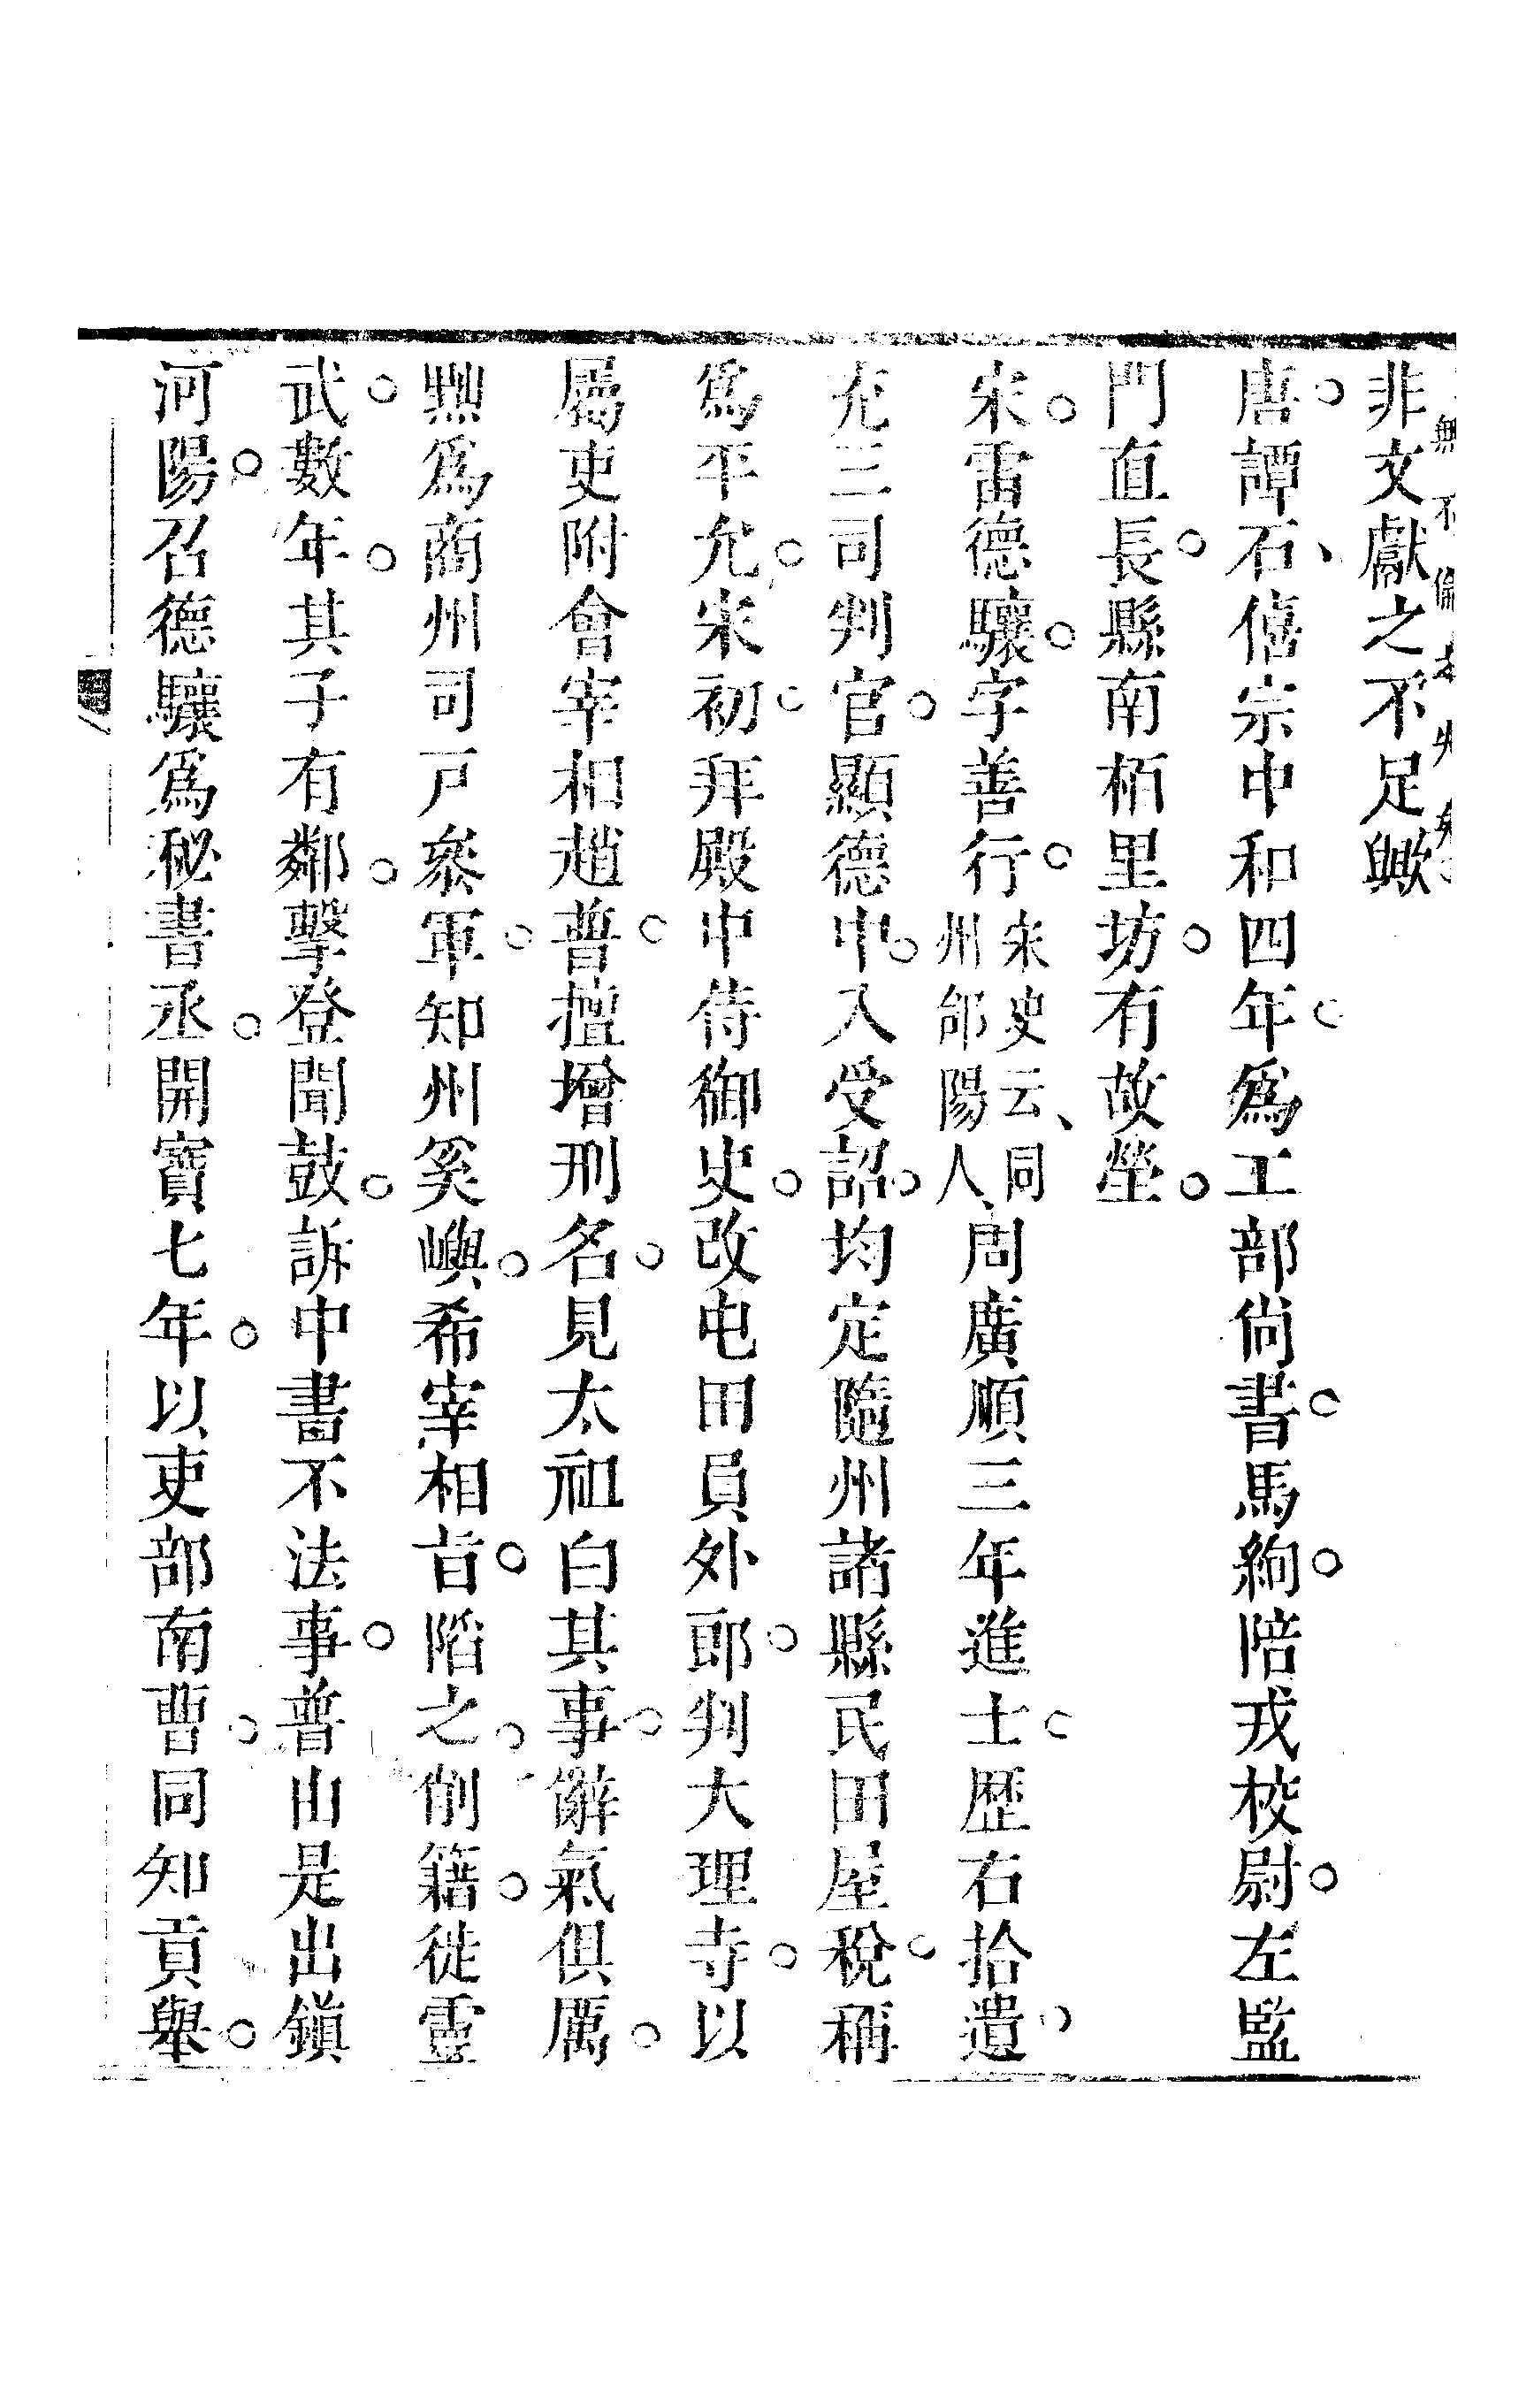 非文獻之不足歟
唐。譚石、僖宗中和四年。爲工部尙書。馬絢。陪戎校尉。左監
門直長。縣南栢里坊。有故塋。
宋。雷德驤。字善行。宋史云、同州郃陽人、周廣順三年進士。歷右拾遺。
充三司判官。顯德中。入受詔。均定隨州諸縣民田屋稅。稱
爲平允。宋初。拜殿中侍御史。改屯田員外郎。判大理寺。以
屬吏附會宰相趙普。擅增刑名。見太祖白其事。辭氣俱厲。
黜爲商州司戸叅軍。知州奚嶼。希宰相旨。陷之。削籍。徙靈
武。數年。其子有鄰。擊登聞鼓。訴中書不法事。普由是出鎭
河陽。召德驤爲秘書丞。開寶七年。以吏部南曹。同知貢舉。